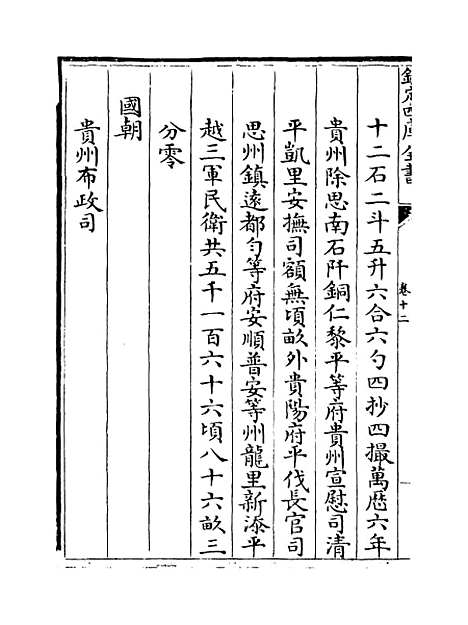 欽定四庫全書
卷十二
十二石二斗五升六合六勺四抄四撮萬厯六年
貴州除思南石阡銅仁黎平等府貴州宣慰司清
平凱里安撫司額無頃畝外貴陽府平伐長官司
思州鎮遠都勻等府安順普安等州龍里新添平
越三軍民衛共五千一百六十六頃八十六畝三
分零
國朝
貴州布政司